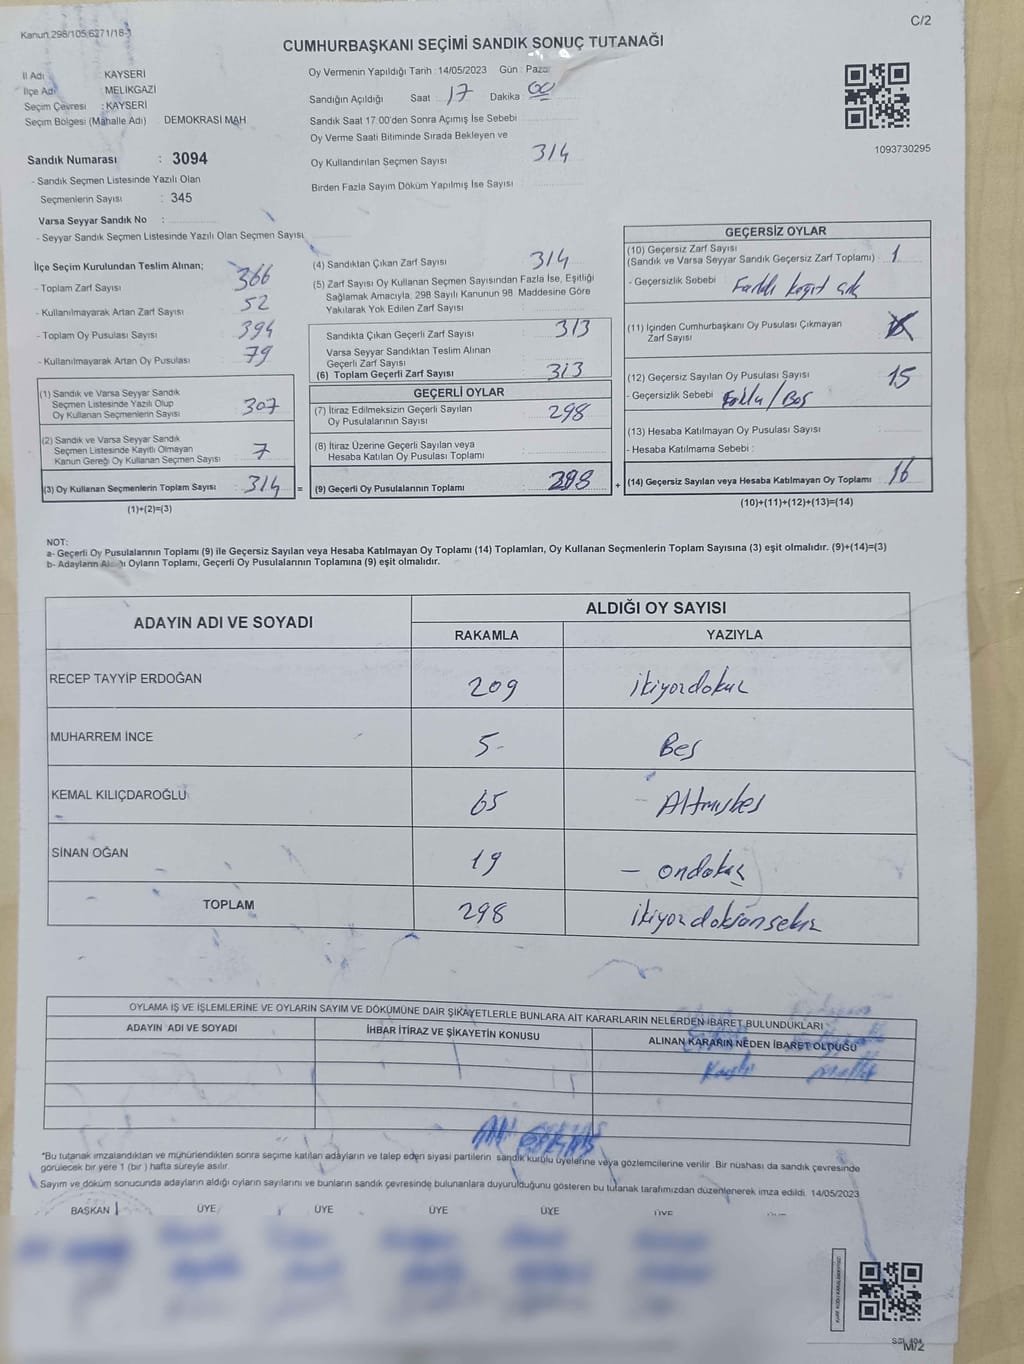 C/2
Kanun 298/105,6271/18-1
CUMHURBAŞKANI SEÇİMİ SANDIK SONUÇ TUTANAĞI
İl Adı : KAYSERİ
İlçe Adı : MELİKGAZİ
Seçim Çevresi : KAYSERİ
Seçim Bölgesi (Mahalle Adı) DEMOKRASİ MAH
Oy Vermenin Yapıldığı Tarih : 14/05/2023 Gün : Pazar
Sandığın Açıldığı Saat 17 Dakika 00
Sandık Saat 17:00'den Sonra Açımış İse Sebebi
Oy Verme Saati Bitiminde Sırada Bekleyen ve
Oy Kullandırılan Seçmen Sayısı 314
Birden Fazla Sayım Döküm Yapılmış İse Sayısı
1093730295
Sandık Numarası : 3094
- Sandık Seçmen Listesinde Yazılı Olan
Seçmenlerin Sayısı : 345
Varsa Seyyar Sandık No :
- Seyyar Sandık Seçmen Listesinde Yazılı Olan Seçmen Sayısı
İlçe Seçim Kurulundan Teslim Alınan;
- Toplam Zarf Sayısı 366
- Kullanılmayarak Artan Zarf Sayısı 52
- Toplam Oy Pusulası Sayısı 394
- Kullanılmayarak Artan Oy Pusulası 79
(1) Sandık ve Varsa Seyyar Sandık
Seçmen Listesinde Yazılı Olup
Oy Kullanan Seçmenlerin Sayısı 307
(2) Sandık ve Varsa Seyyar Sandık
Seçmen Listesinde Kayıtlı Olmayan
Kanun Gereği Oy Kullanan Seçmen Sayısı 7
(3) Oy Kullanan Seçmenlerin Toplam Sayısı : 314 =
(1)+(2)=(3)
(4) Sandıktan Çıkan Zarf Sayısı 314
(5) Zarf Sayısı Oy Kullanan Seçmen Sayısından Fazla İse, Eşitliği
Sağlamak Amacıyla, 298 Sayılı Kanunun 98. Maddesine Göre
Yakılarak Yok Edilen Zarf Sayısı
Sandıkta Çıkan Geçerli Zarf Sayısı 313
Varsa Seyyar Sandıktan Teslim Alınan
Geçerli Zarf Sayısı
(6) Toplam Geçerli Zarf Sayısı 313
GEÇERLİ OYLAR
(7) İtiraz Edilmeksizin Geçerli Sayılan
Oy Pusulalarının Sayısı 298
(8) İtiraz Üzerine Geçerli Sayılan veya
Hesaba Katılan Oy Pusulası Toplamı
(9) Geçerli Oy Pusulalarının Toplamı 298 +
GEÇERSİZ OYLAR
(10) Geçersiz Zarf Sayısı
(Sandık ve Varsa Seyyar Sandık Geçersiz Zarf Toplamı) : 1
- Geçersizlik Sebebi Farklı kağıt
(11) İçinden Cumhurbaşkanı Oy Pusulası Çıkmayan
Zarf Sayısı
(12) Geçersiz Sayılan Oy Pusulası Sayısı 15
- Geçersizlik Sebebi / Boş
(13) Hesaba Katılmayan Oy Pusulası Sayısı
- Hesaba Katılmama Sebebi :
(14) Geçersiz Sayılan veya Hesaba Katılmayan Oy Toplamı 16
(10)+(11)+(12)+(13)=(14)
NOT:
a- Geçerli Oy Pusulalarının Toplamı (9) ile Geçersiz Sayılan veya Hesaba Katılmayan Oy Toplamı (14) Toplamları, Oy Kullanan Seçmenlerin Toplam Sayısına (3) eşit olmalıdır. (9)+(14)=(3)
b- Adayların Aldığı Oyların Toplamı, Geçerli Oy Pusulalarının Toplamına (9) eşit olmalıdır.
ADAYIN ADI VE SOYADI
ALDIĞI OY SAYISI
RAKAMLA YAZIYLA
RECEP TAYYİP ERDOĞAN 209 ikiyüzdokuz
MUHARREM İNCE 5- Beş
KEMAL KILIÇDAROĞLU 65 - Altmışbeş
SİNAN OĞAN 19 - ondokuz
TOPLAM 298 ikiyüzdoksansekiz
OYLAMA İŞ VE İŞLEMLERİNE VE OYLARIN SAYIM VE DÖKÜMÜNE DAİR ŞİKAYETLERLE BUNLARA AİT KARARLARIN NELERDEN İBARET BULUNDUKLARI
ADAYIN ADI VE SOYADI
İHBAR İTİRAZ VE ŞİKAYETİN KONUSU
ALINAN KARARIN NEDEN İBARET OLDUĞU
*Bu tutanak imzalandıktan ve mühürlendikten sonra seçime katılan adayların ve talep eden siyasi partilerin sandık kurulu üyelerine veya gözlemcilerine verilir. Bir nüshası da sandık çevresinde
görülecek bir yere 1 (bir ) hafta süreyle asılır.
Sayım ve döküm sonucunda adayların aldığı oyların sayılarını ve bunların sandık çevresinde bulunanlara duyurulduğunu gösteren bu tutanak tarafımızdan düzenlenerek imza edildi. 14/05/2023
BAŞKAN ÜYE ÜYE ÜYE ÜYE ÜYE
M/2